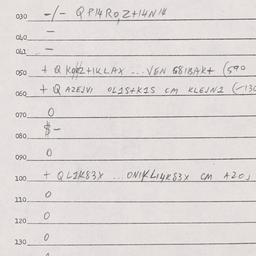 030 -/- Q P14R0, Z+14N1K
040 -
041 -
050 + Q K992+1KLAX ... VEN 581BAK+ (590
060 + Q AZEJVI OL1S+K1S CM KLEJN1 (-130
070 0
080 $-
090 0
100 + QL1K83X ... ON1KL14K83X CM AZOJ
110 0
120 0
130 0